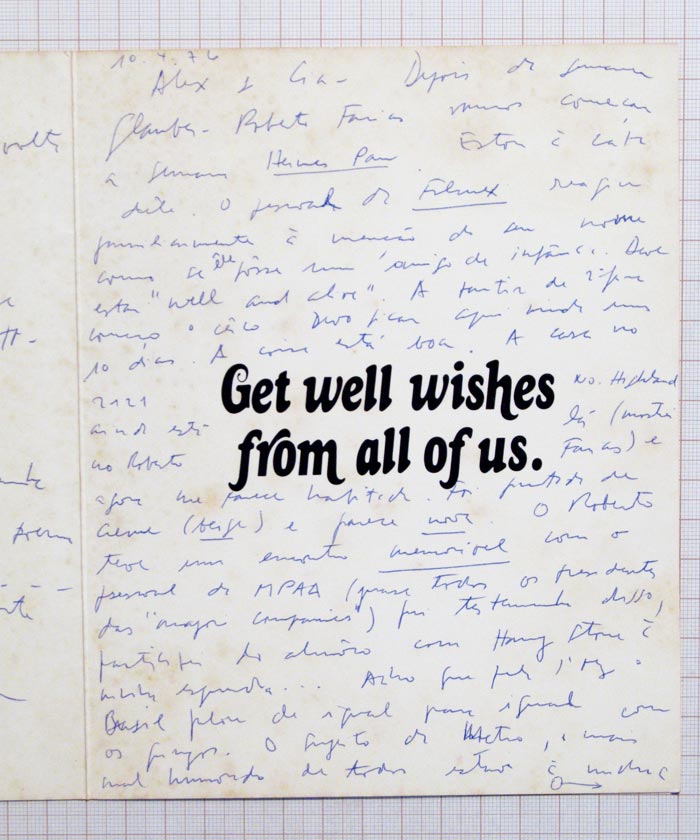 10.4.76
Alex & Cia - Depois de semana
Glauber - Roberto Farias vamos começar
a semana Hermes Pan. Estou à cata
dele. O pessoal do Filmex reagiu
à menção do seu nome
como se ele fosse um amigo de infância. Deve
estar "well and alive". A partir de 2ª feira
começo o Devo ficar aqui ainda uns
10 dias. A coisa está boa. A casa no
2121 No. Highland
ainda está lá (mostrei
ao Roberto Farias) e
agora me parece habitada. Foi pintada de
creme (beige) e parece nova. O Roberto
teve um encontro memorável com o
pessoal da MPAA (quase todos os presidentes
das "major companies") fui testemunha disso,
participei do almoço com Harry Stone à
minha esquerda... Acho que pela 1ª vez o
Brasil falou de igual para igual com
os gringos. O sujeito da Metro, o mais
mal humorado de todos estava à minha
Get well wishes
from all of us.
volta